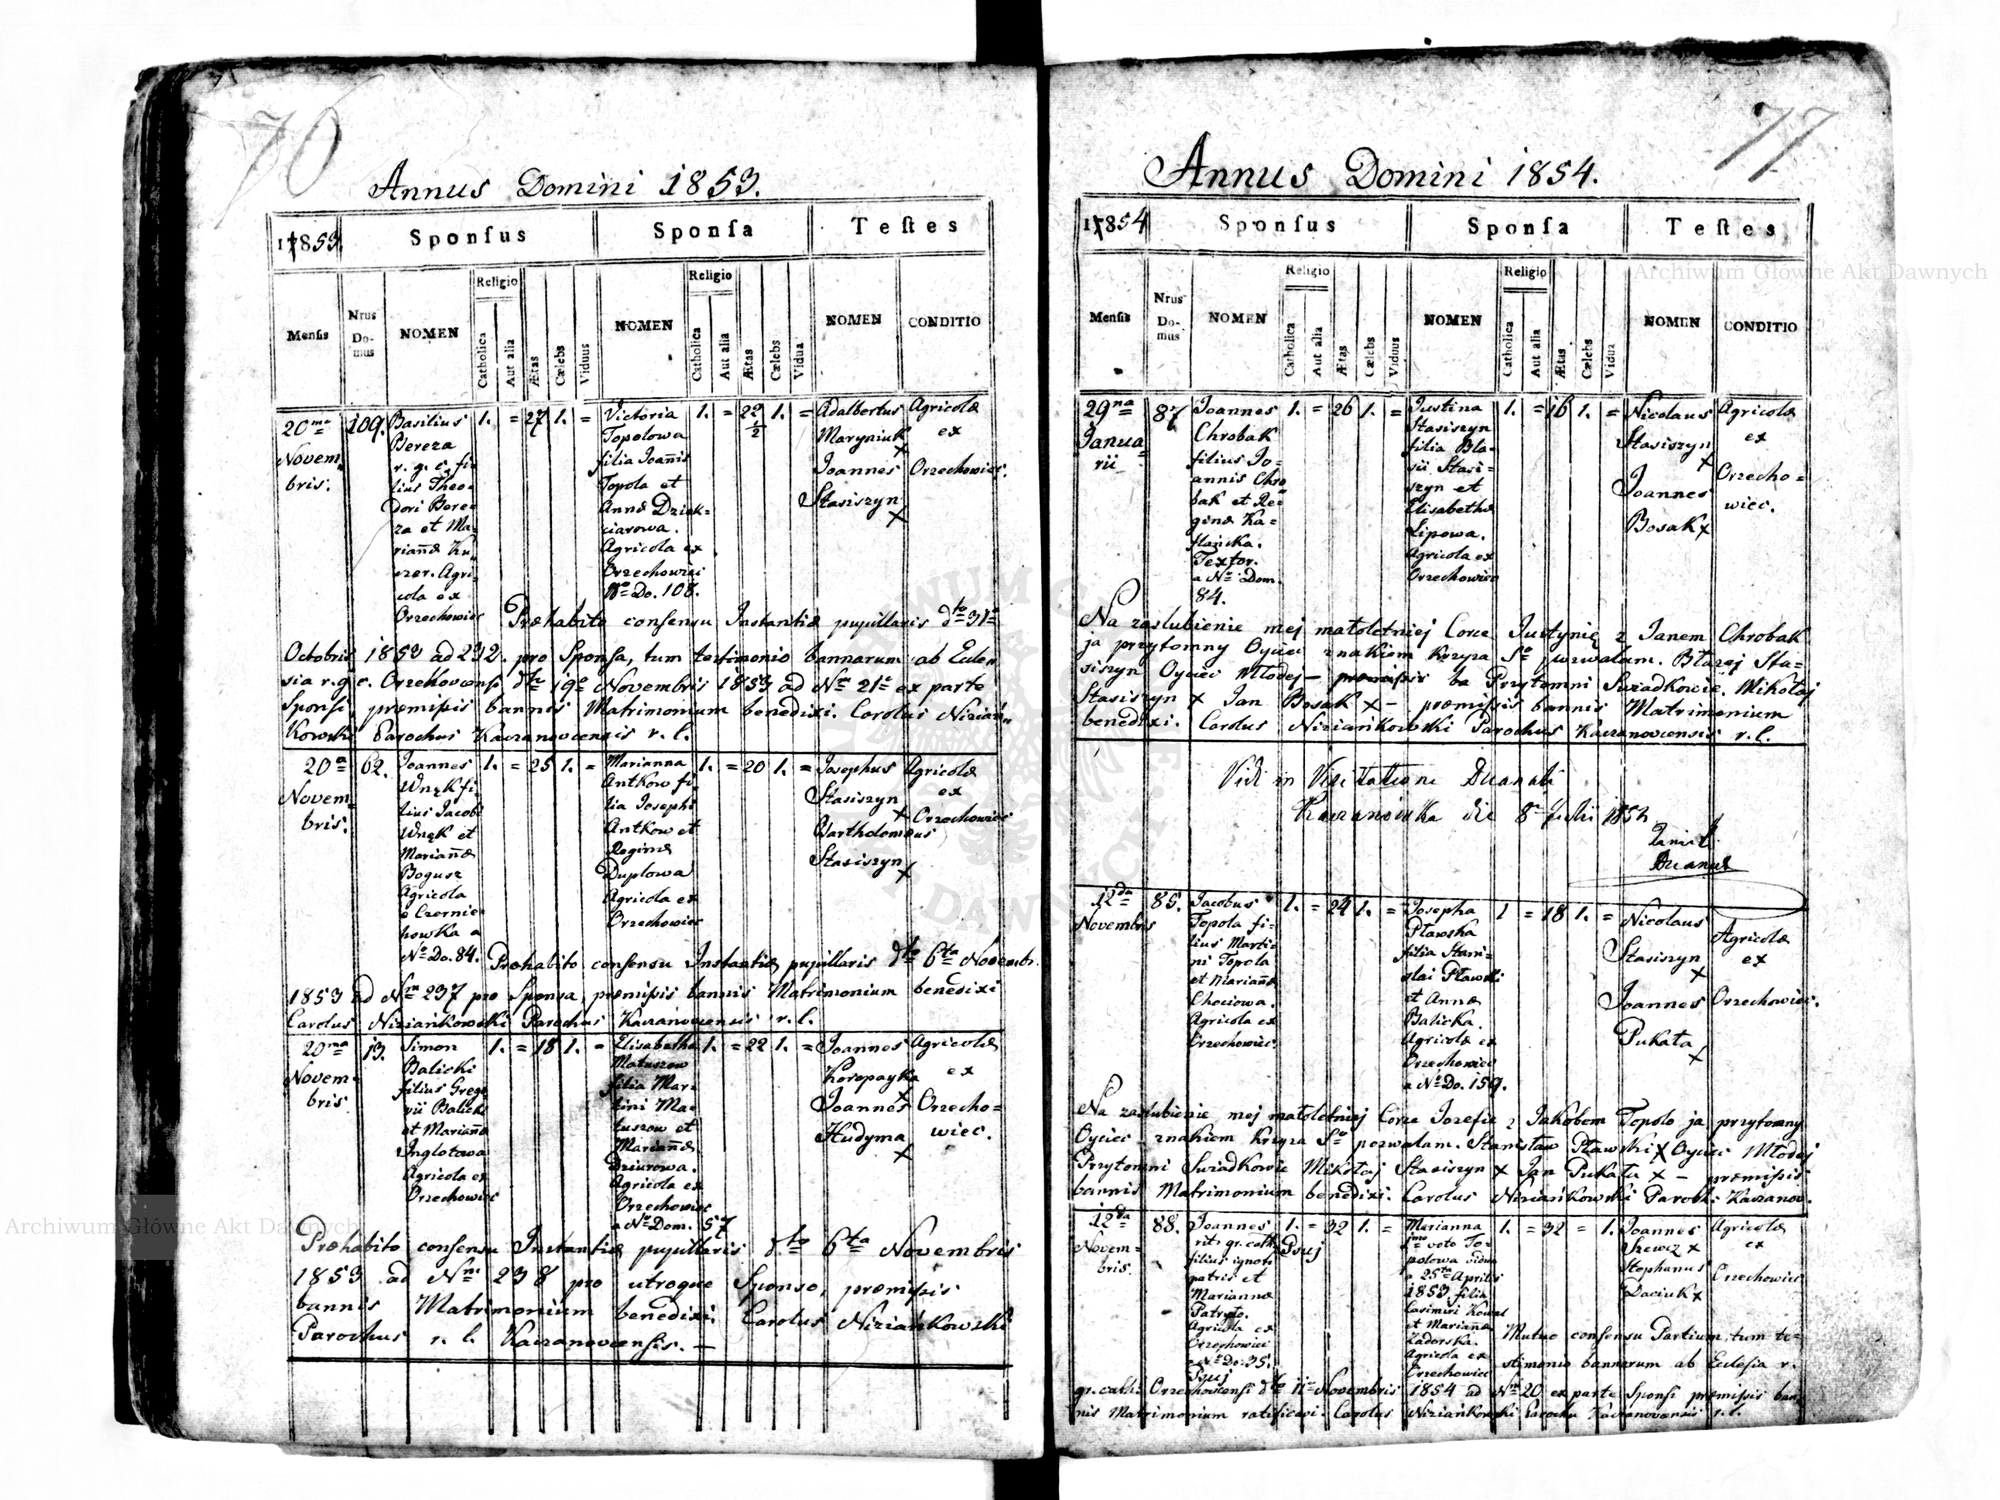 70
Annus Domini 1853.
1853 Sponſus Sponſa Teſtes
Menſis Nrus Do-mus NOMEN Religio Catholica Aut alia Ætas Cælebs Viduus NOMEN Religio Catholica Aut alia Ætas Cælebs Vidua NOMEN CONDITIO
20ma Novem-bris.
109.
Basilius
Bereza
r. g. c. fi
lius Theo-
dori Bere-
za et Ma-
riannæ Ku-
czer. Agri-
cola ex
Orzechowiec
1. = 27 1. =
Victoria
Topolowa
filia Joannis
Topola et
Annæ Dziek-
ciarowa.
Agricola ex
Orzechowiec
No Do. 108.
1. = 22 1/2 1. =
Adalbertus
Maryniuk
x
Joannes
Stasiszyn
x
Agricolæ
ex
Orzechowiec.
Præhabito consensu Instantiæ pupillaris dto 31a
Octobris 1853 ad 232. pro Sponsa, tum testimonio bannorum ab Eccle-
sia r. g. c. Orzechovcensi dto 19a Novembris 1853 ad Nm 21a ex parte
Sponsi, præmissis bannis Matrimonium benedixi. Carolus Niziań-
kowski Parochus Kaczanovcensis r. l.
20a
Novem-
bris.
62.
Joannes
Wnęk fi-
lius Jacobi
Wnęk et
Mariannæ
Bogusz
Agricola
e Czernie-
howka a
No Do. 84.
1. = 25 1. =
Marianna
Antkow fi-
lia Josephi
Antkow et
Reginæ
Duplowa
Agricola ex
Orzechowiec
1. = 20 1. =
Josephus
Stasiszyn
x
Bartholomæus
Stasiszyn
x
Agricolæ
ex
Orzechowiec
Præhabito consensu Instantiæ pupillaris dto 6ta Novembr.
1853 ad Nm 237 pro Sponsa, præmissis bannis Matrimonium benedixi
Carolus Niziańkowski Parochus Kaczanovcensis r. l.
20ma
Novem-
bris
13.
Simon
Balicki
filius Grego
rii Balicki
et Mariannæ
Inglotowa
Agricola ex
Orzechowiec
1. = 18 1. =
Elisabetha
Matuszow
filia Mar-
tini Ma-
tuszow et
Mariannæ
Dziurowa.
Agricola ex
Orzechowiec
a No Dom. 57
1. = 22 1. =
Joannes
Koropayka
x
Joannes
Hudyma
x
Agricolæ
ex
Orzecho-
wiec.
Præhabito consensu Instantiæ pupillaris dto 6ta Novembris
1853 ad Nm 238 pro utroque Sponso, præmissis
bannis Matrimonium benedixi. Carolus Niziańkowski
Parochus r. l. Kaczanovcensis. —
77
Annus Domini 1854.
1854 Sponſus Sponſa Teſtes
Menſis Nrus Do-mus NOMEN Religio Catholica Aut alia Ætas Cælebs Viduus NOMEN Religio Catholica Aut alia Ætas Cælebs Vidua NOMEN CONDITIO
29na
Janua-
rii
87
Joannes
Chrobak
filius Jo-
annis Chro
bak et Re-
ginæ Ka-
Textor.
a No Dom.
84.
1. = 26 1. =
Justina
Stasiszyn
filia Bla-
sii Stasi-
szyn et
Elisabethæ
Lipowa.
Agricola ex
Orzechowiec
1. = 16 1. =
Nicolaus
Stasiszyn
x
Joannes
Bosak x
Agricolæ
ex
Orzecho-
wiec.
Na zaslubienie mej małoletniej Corce Justynie z Janem Chrobak
ja przytomny Oyciec znakiem Krzyza So pozwalam. Błazej Sta-
siszyn Oyciec Młodej — præmissis ba Przytomni Swiadkowie. Mikołaj
Stasiszyn x Jan Bosak x — præmissis bannis Matrimonium
benedixi. Carolus Niziańkowski Parochus Kaczanovcensis r. l.
Vidi in Visitatione Decanali
Kaczanówka die 8a Julii 1854
Decanus
12da
Novembris
85.
Jacobus
Topola fi-
lius Marti-
ni Topola
et Mariannæ
Chociowa.
Agricola ex
Orzechowiec.
1. = 24 1. =
Josepha
Pławska
filia Stani-
slai Pławski
et Annæ
Balicka.
Agricola ex
Orzechowiec
a No Do. 159.
1 = 18 1. =
Nicolaus
Stasiszyn
x
Joannes
Pukata
x
Agricolæ
ex
Orzechowiec.
Na zaslubienie mej małoletniej Corce Jozefie z Jakobem Topolo ja przytomny
Oyciec znakiem Krzyza So pozwalam. Stanisław Pławski x Oyciec Młodej
Przytomni Swiadkowie Mikołaj Stasiszyn x Jan Pukata x — præmissis
bannis Matrimonium benedixi. Carolus Niziańkowski Paroch: Kaczanov.
12da
Novem-
bris.
88.
Joannes
rit: gr. cath.
Psuj
filius ignoti
patris et
Mariannæ
Agricola ex
Orzechowiec
a No Do: 35.
Psuj
1. = 32 1. =
Marianna
1mo voto To-
polowa vidua
a 25ta Aprilis
1853 filia
Casimiri Kowal
et Mariannæ
Zadorska.
Agricola ex
Orzechowiec
1. = 32 = 1.
Joannes
Szewcz x
Stephanus
Daciuk x
Agricolæ
ex
Orzechowiec
Mutuo consensu Partium, tum te-
stimonio bannorum ab Ecclesia r.
gr. cath: Orzechovcensi dto 11a Novembris 1854 ad Nm 20 ex parte Sponsi præmissis ban-
nis Matrimonium ratificavi. Carolus Niziańkowski Parochus Kaczanovcensis r. l.
Archiwum Główne Akt Dawnych
Archiwum Główne Akt Dawnych